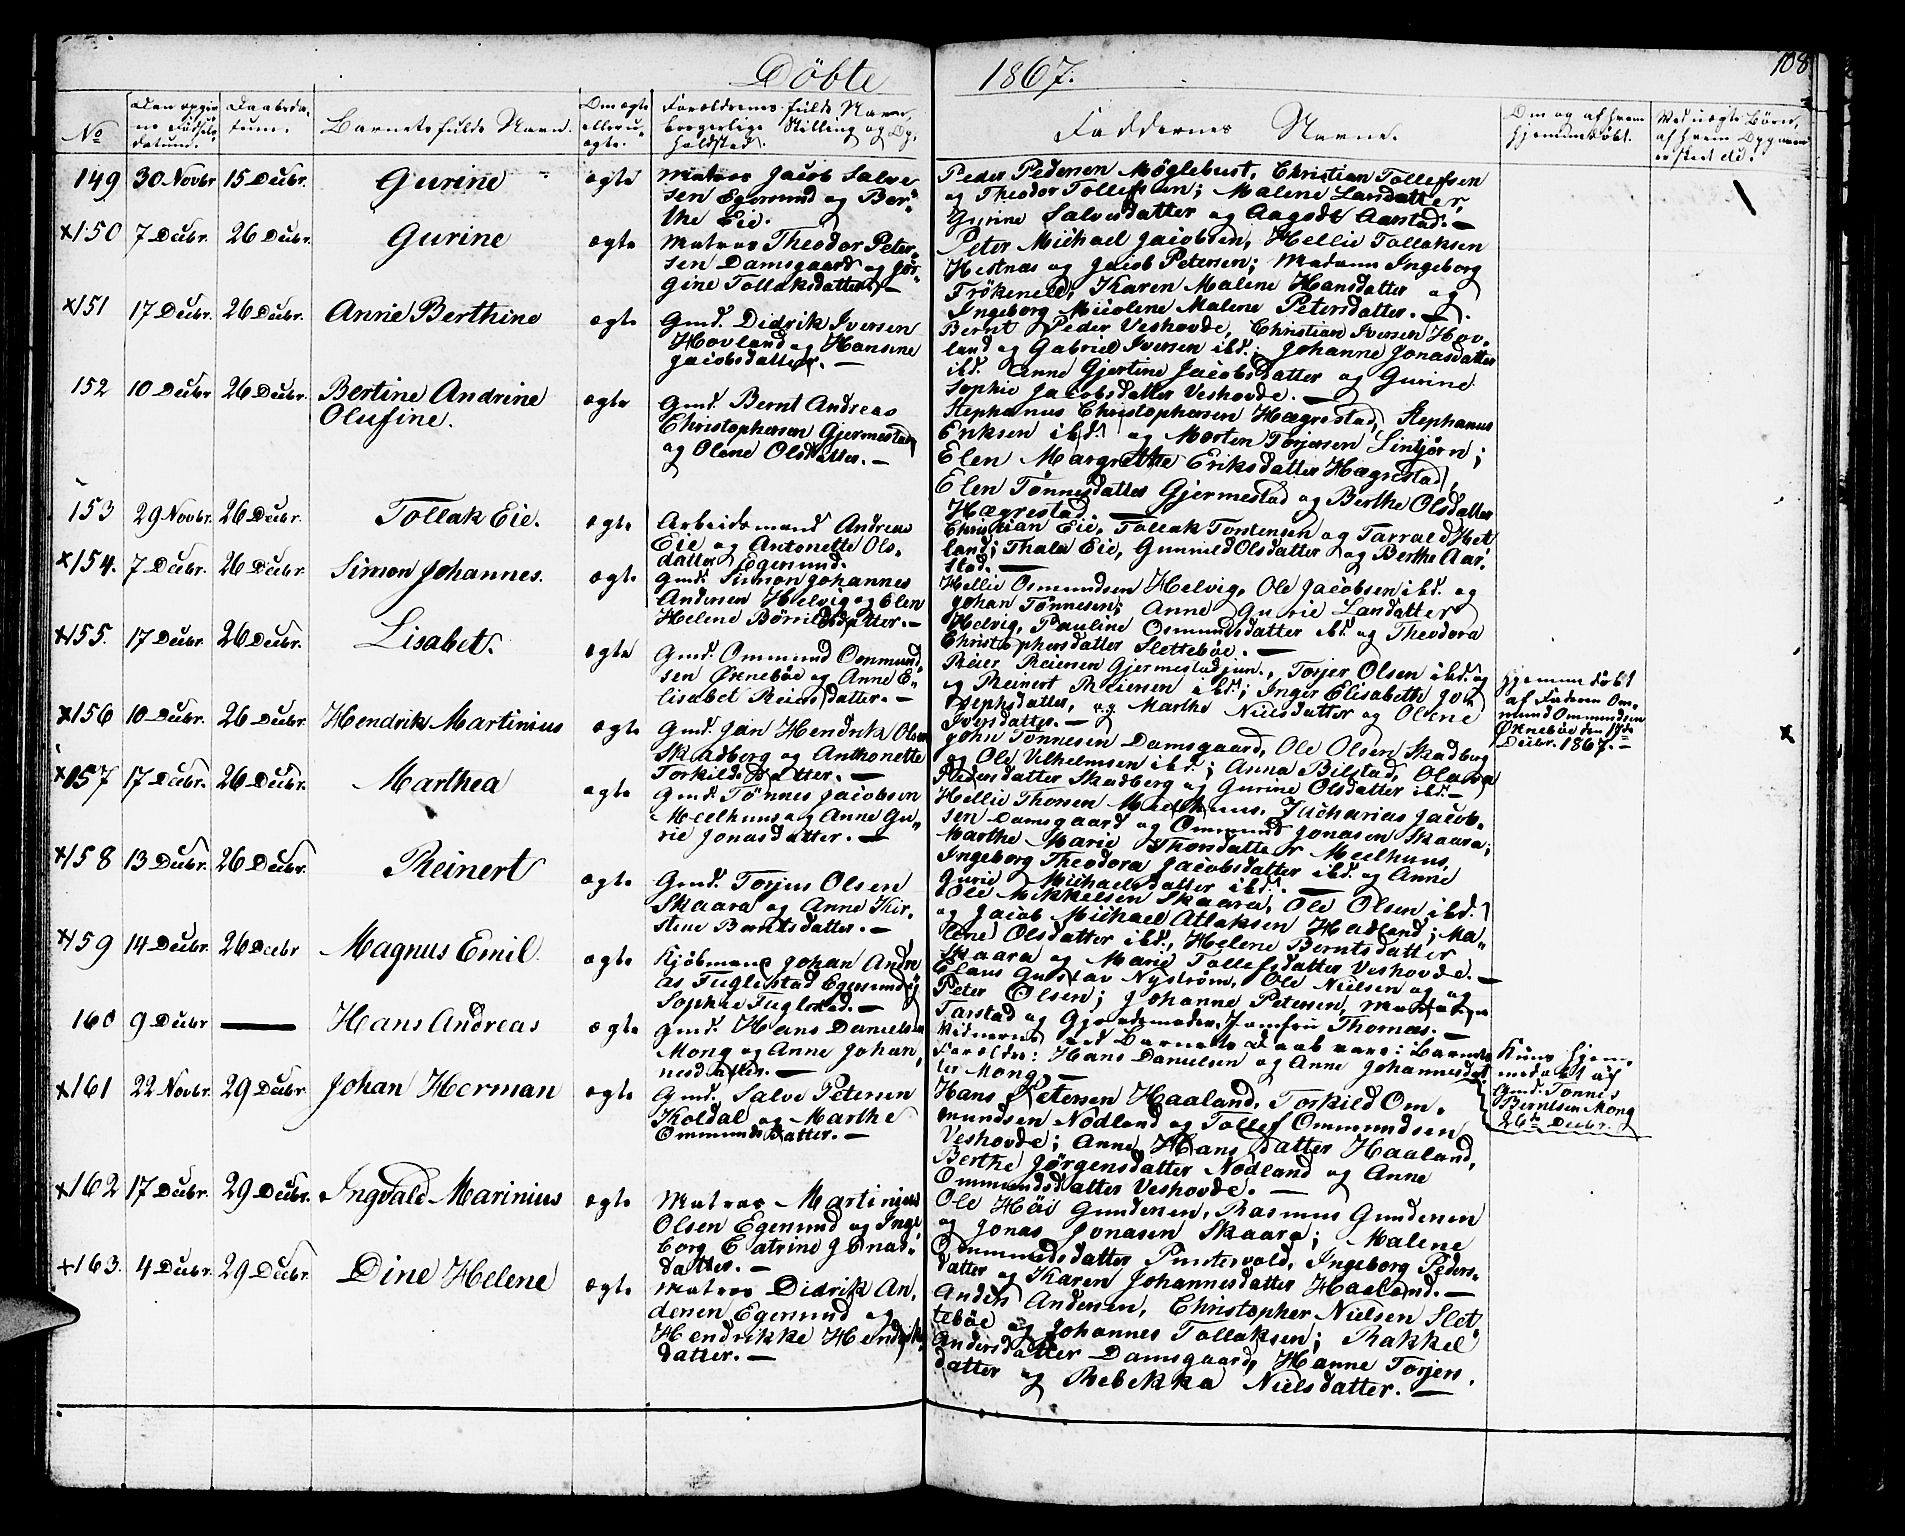 Döbte 1867.
108
No
den opgivne Fødselsdatum.
Daabsdatum.
Barnets fulde Navn.
Om ægte eller uægte.
Forældrenes fulde Navn, borgerlige Stilling og Opholdsted.
Faddernes Navne.
Om og af hvem hjemmedøbt.
Ved uægte Börn,
149 30 Novbr 15 Decbr. Gurine ægte
Matros Jacob Salve
sen Egersund og Ber
the Eie.
Peder Pedersen Möglebust, Christian Tollefsen
og Theodor Tollefsen; Malene Larsdatter,
Gurine Salvesdatter og Aagodt Aarstad. —
×150 7 Decbr. 26 Decbr. Gurine ægte
Matros Theodor Peter
sen Damsgaard og Jör
gine Tollaksdatter. —
Peter Michael Jacobsen, Hellie Tollaksen
Hestnæs og Jacob Petersen; Madam Ingeborg
Frökeneld, Karen Malene Hansdatter og
Ingeborg Nicolene Malene Petersdatter. —
×151 17 Decbr. 26 Decbr. Anne Berthine ægte
Gmd. Didrik Iversen
Hovland og Hansine
Jacobsdatter. —
Bernt Peder Veshovde, Christian Iversen Hov,
land og Gabriel Iversen ibd.; Johanne Jonasdatter
ibd. Anne Gjertine Jacobsdatter og Gurine
Sophie Jacobsdatter Veshovde. —
152 10 Decbr 26 Decbr. Bertine Andrine ægte
Olufine.
Gmd. Bernt Andreas
Christophersen Gjermestad
og Olene Olsdatter. —
Stephanus Christophersen Hægrestad, Stephanus
Eriksen ibd. og Morten Torjersen Lintjörn;
Elen Margrethe Eriksdatter Hægrestad,
Elen Tönnesdatter Gjermestad og Berthe Olsdatter
Hægrestad. —
153 29 Novbr. 26 Decbr. Tollak Eie. ægte
Arbeidsmand Andreas
Eie og Antonette Ols,
datter Egersund.
Christian Eie, Tollak Torstensen og Tarrald Het
land; Thala Eie, Gunnild Olsdatter og Berthe Aar,
stad. —
×154. 7 Decbr. 26 Decbr. Simon Johannes. ægte
Gmd. Simon Johannes
Andersen Helvig og Elen
Helene Börrildsdatter. —
Hellie Osmundsen Helvig, Ole Jacobsen ibd. og
Johan Tönnesen; Anne Gurie Larsdatter
Helvig, Pauline Osmundsdatter ibd. og Theodora
Christophersdatter Slettebøe. —
×155. 17 Decbr 26 Decbr. Lisabet. ægte
Gmd. Ommund Ommund,
sen Öknebøe og Anne E,
lisabet Reiersdatter. —
Reier Reiersen Gjermestad jun., Torjer Olsen ibd. og
og Reinert Reiersen ibd.; Inger Elisabeth Jo
sephsdatter, Marthe Nielsdatter og Olene
Iversdatter. —
hjemmedöbt
af Faderen Om,
mund Ommundsen
Öknebøe den 19de
Decbr. 1867. —
×156 10 Decbr. 26 Decbr. Hendrik Martinius ægte
Gmd. Jan Hendrik Olsen
Skadberg og Anthonette
Torkildsdatter. —
John Tönnesen Damsgaard, Ole Olsen Skadberg
og Ole Vilhelmsen ibd.; Anna Bilstad, Olava
Pedersdatter Skadberg og Gurine Olsdatter ibd. —
×157 17 Decbr. 26 Decbr. Marthea ægte
Gmd. Tönnes Jacobsen
Meelhuus og Anne Gu,
rie Jonasdatter. —
Hellie Thorsen Meelhuus, Zacharias Jacob,
sen Damsgaard og Ommund Jonasen Skaara;
Marthe Marie Thorsdatter Meelhuus,
Ingeborg Theodora Jacobsdatter ibd. og Anne
Gurie Michaelsdatter ibd. —
×158 13 Decbr. 26 Decbr. Reinert ægte
Gmd. Torjus Olsen
Skaara og Anne Kir,
stine Berntsdatter. —
Ole Mikkelsen Skaara, Ole Olsen ibd.
og Jacob Michael Atlaksen Hadland; Ma,
lene Olsdatter ibd., Helene Berntsdatter
Skaara og Marie Tollefsdatter Veshovde. —
×159 14 Decbr. 26 Decbr Magnus Emil. ægte
Kjöbmand Johan Andre
as Fuglestad Egersund og
Sophie Fuglestad. —
Claus Gustav Nyström, Ole Nielsen og
Peter Olsen; Johanne Petersen,
Tarstad og Gjordemoder Jomfru Thomas. —
160 9 Decbr — Hans Andreas ægte
Gmd. Hans Danielsen
Mong og Anne Johan,
nesdatter. —
Vidnerne ved Barnets Daab vare: Barnets
Forældre: Hans Danielsen og Anne Johannesdat
ter Mong. —
Kuns hjem,
medöbt af
Gmd. Tönnes
Berntsen Mong
26de Decbr.
×161 22 Novbr. 29 Decbr. Johan Herman ægte
Gmd. Salve Petersen
Koldal og Marthe
Ommundsdatter. —
Hans Petersen Haaland, Torkild Om,
mundsen Nodland og Tollef Ommundsen
Veshovde; Anne Hansdatter Haaland,
Berthe Jörgensdatter Nodland og Anne
Ommundsdatter Veshovde. —
×162 17 Decbr. 29 Decbr. Ingvald Marinius ægte
Matros Martinius
Olsen Egersund og Inge
borg Catrine Jonas,
datter. —
Ole Höi Gundersen, Rasmus Gundersen
og Jonas Jonasen Skaara; Malene
Ommundsdatter Puntervold, Ingeborg Peders,
datter og Karen Johannesdatter Haaland. —
+163. 4 Decbr. 29 Decbr. Dine Helene ægte
Matros Didrik An,
dersen Egersund og
Hendrikke Hendriks
datter. —
Anders Andersen, Christopher Nielsen Slet
tebøe og Johannes Tollaksen; Rakkel
Andersdatter Damsgaard, Hanne Torjers,
datter og Rebekka Nielsdatter. —